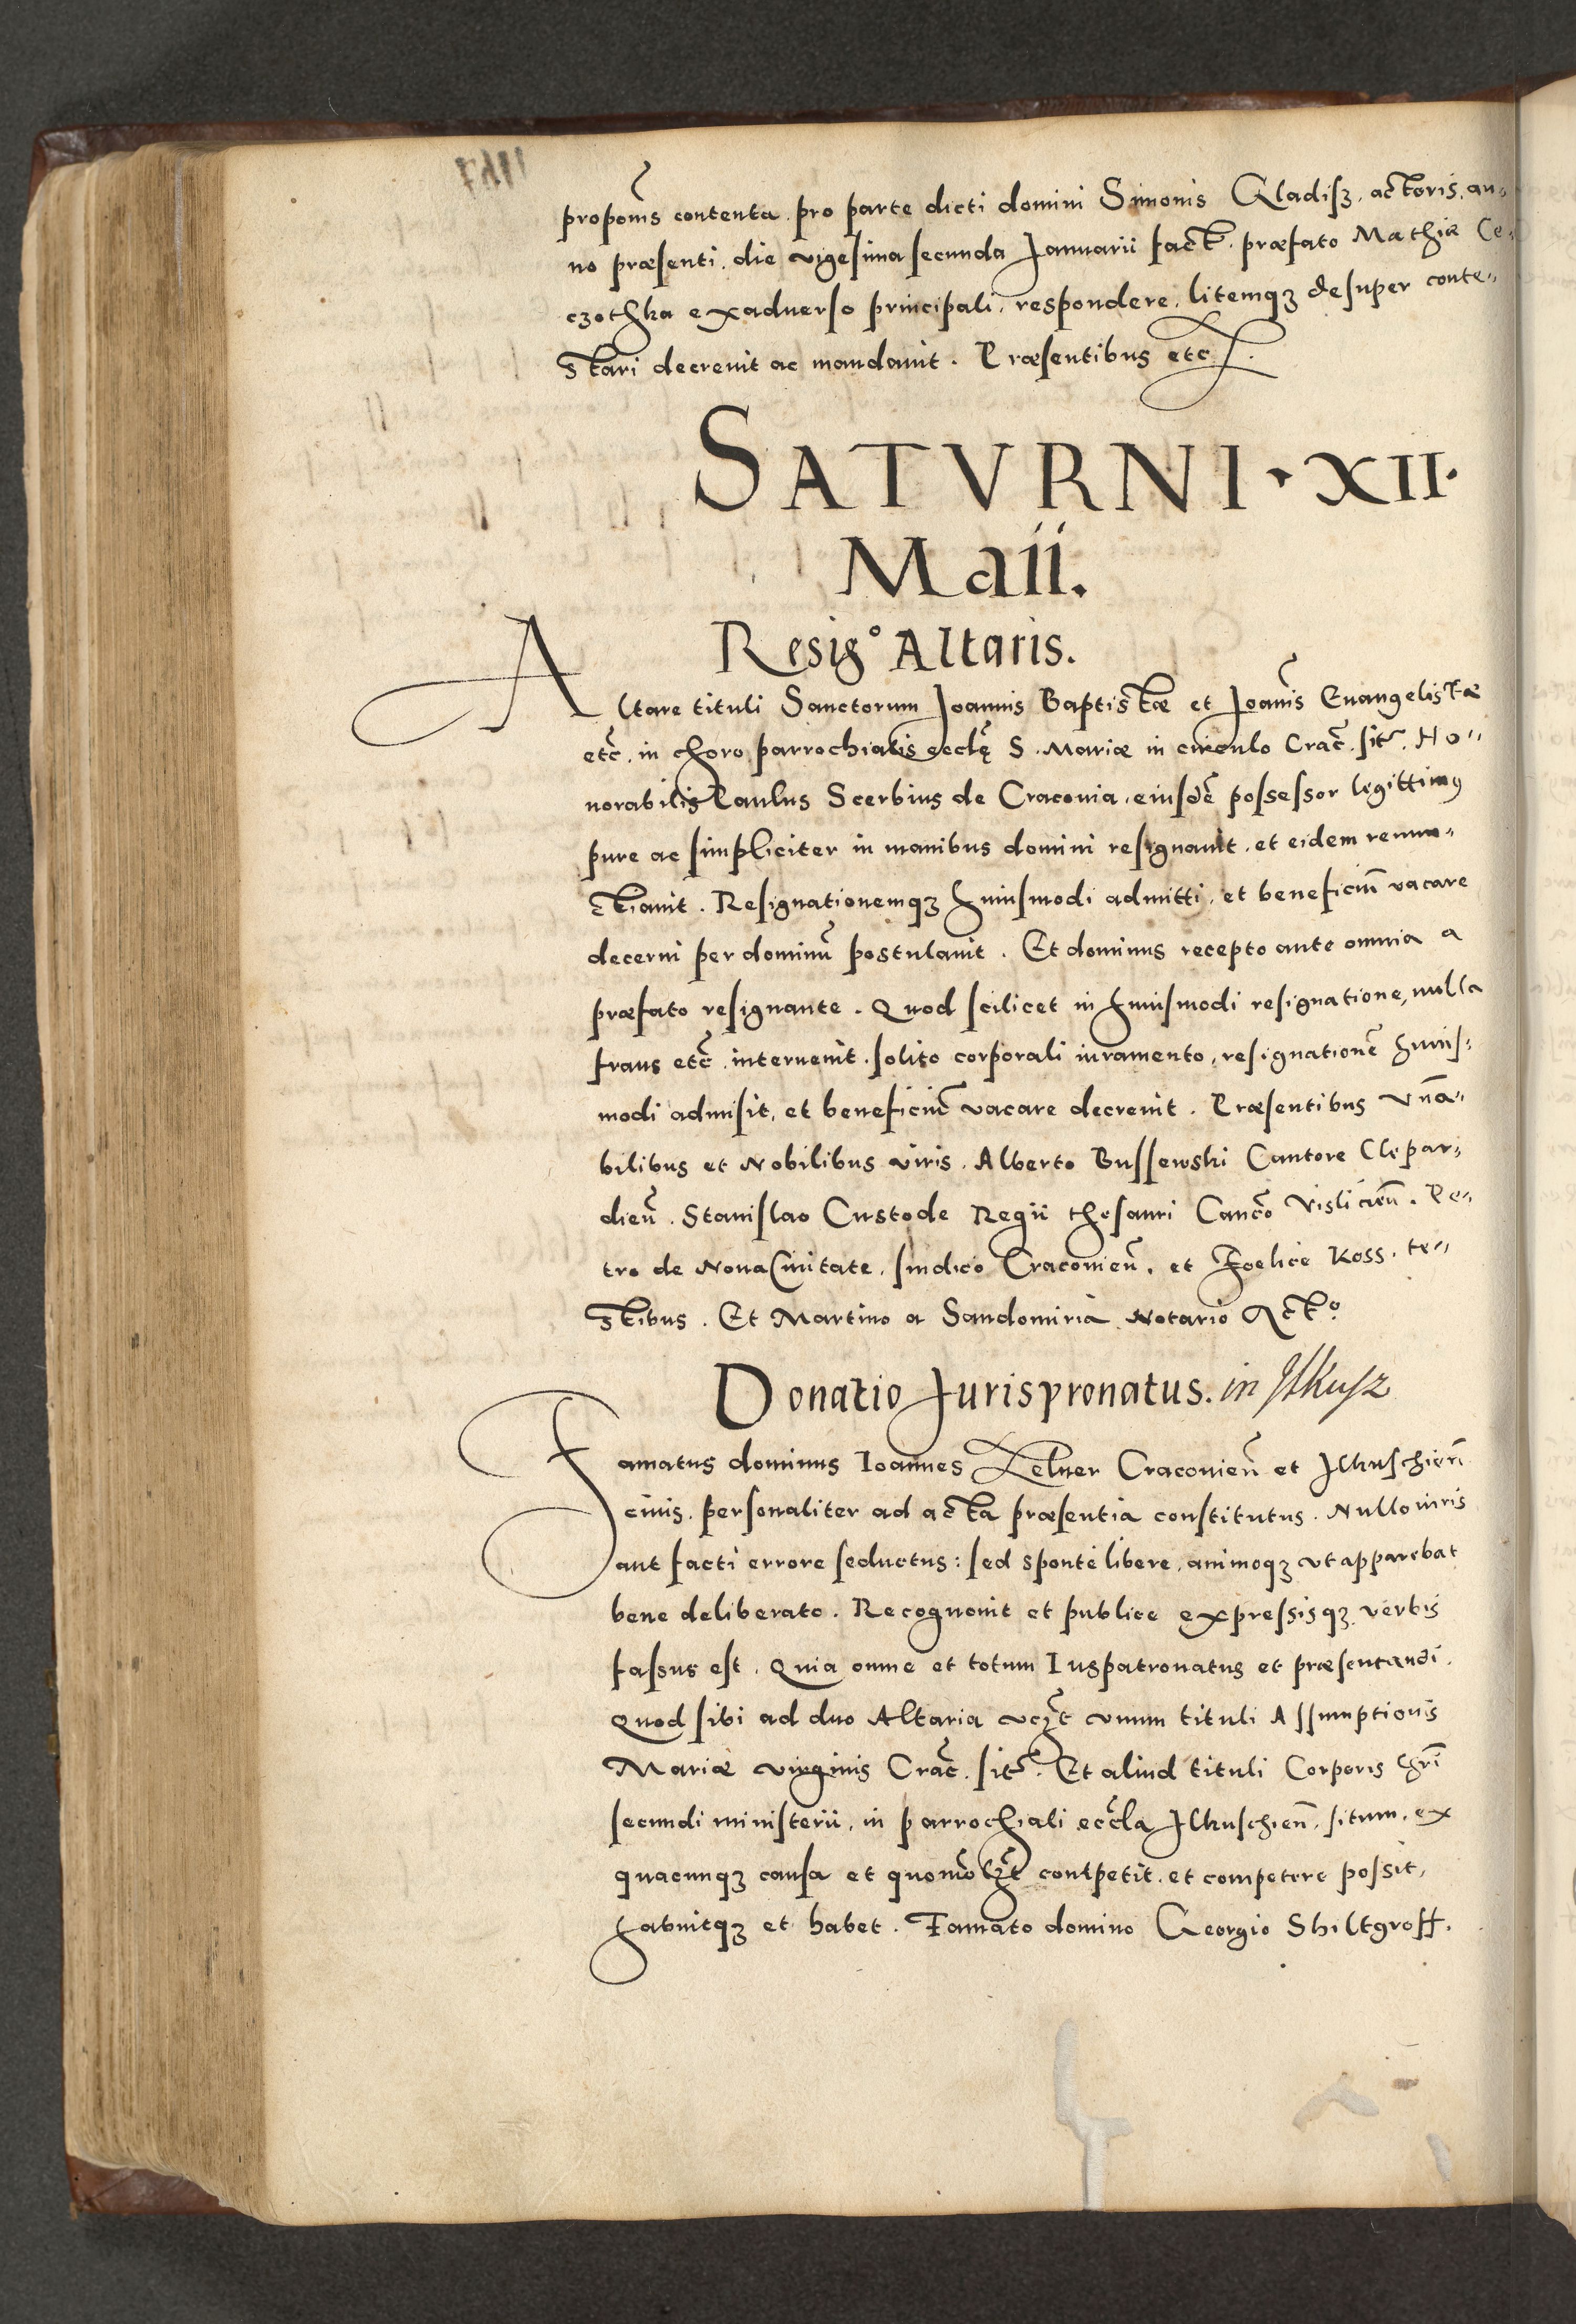 propoĩs contenta pro parte dicti domini Simonis Gladisz, actoris, an-
no præsenti, die vigesima secunda Januarii fact. præfato Mathiæ Ce-
czothka exaduerso principali, respondere, litemq₃ desuper conte-
stari decreuit ac mandauit. Præsentibus etc.
SATVRNI · XII ·
Maii.
Resig° Altaris.
Altare tituli Sanctorum Joannis Baptistæ et Joañis Euangelistæ
etc̃. in choro parrochialis ecclę S. Mariæ in circulo Crac̃. sit̃. Ho-
norabilis Paulus Scerbius de Cracouia, eiusdẽ possessor legittimꝯ
pure ac simpliciter in manibus domini resignauit, et eidem renun-
ctiauit. Resignationemq₃ huiusmodi admitti, et beneficiũ vacare
decerni per dominũ postulauit. Et dominus recepto ante omnia a
præfato resignante. Quod scilicet in huiusmodi resignatione, nulla
fraus etc̃ interuenit, solito corporali iuramento, resignationẽ huius-
modi admisit, et beneficiũ vacare decreuit. Præsentibus Vñã-
bilibus et Nobilibus viris, Alberto Bussewski Cantore Clepar-
dieñ. Stanislao Custode Regii thesauri Canc̃o Vislicieñ. Pe-
tro de Noua Ciuitate, sindico Cracouieñ. et Foelice Koss. te-
stibus. Et Martino a Sandomiria Notario Act°.
Donatio Jurispronatus. in Jlkusz
Famatus dominus Ioannes Zelner Cracouieñ et Jlkuschieñ
ciuis, personaliter ad acta præsentia constitutus. Nullo iuris
aut facti errore seductus: sed sponte libere, animoq₃ vt apparebat
bene deliberato. Recognouit et publice expressisq₃ verbis
fassus est. Quia omne et totum Iuspatronatus et præsentandi.
Quod sibi ad duo Altaria vc₃t vnum tituli Assumptionis
Mariæ virginis Crac̃. sit̃. Et aliud tituli Corporis Chrĩ
secundi ministerii, in parrochiali eccl̃a Jlkuschieñ. situm, ex
quacunq₃ causa et quomõl₃t competit, et competere possit,
habuitq₃ et habet. Famato domino Georgio Shiltgroff.